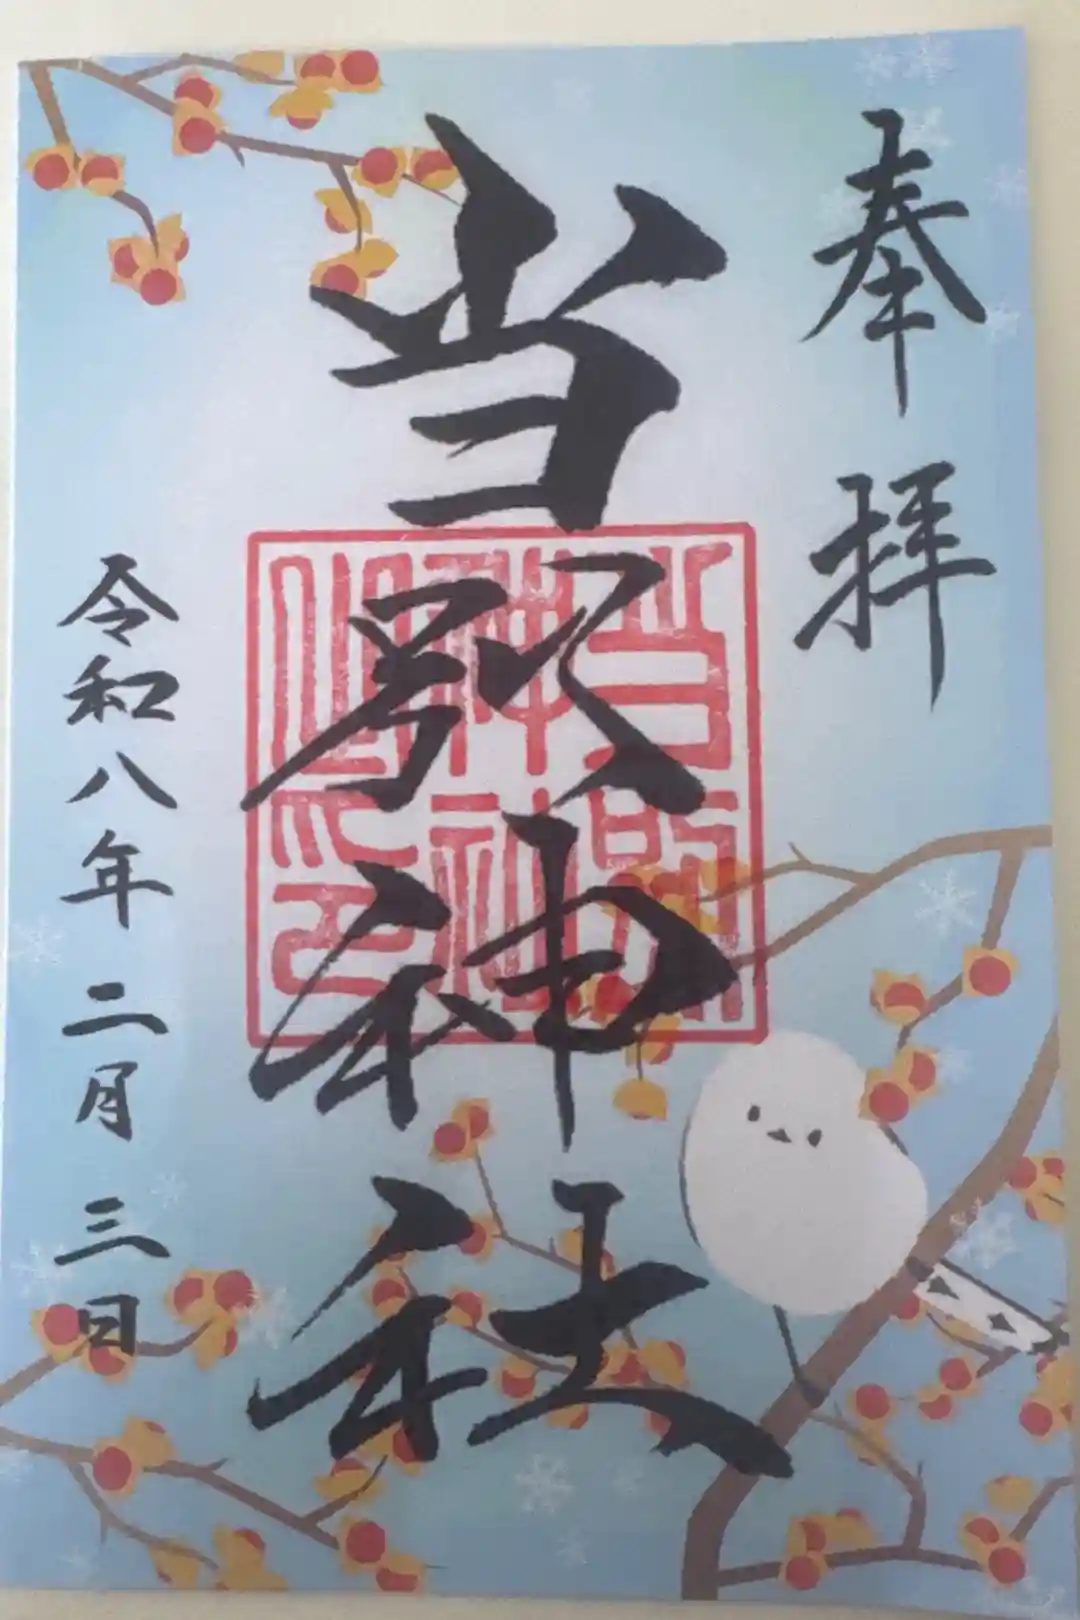 奉拝
当別神社
当別
神社
之印
令和八年二月三日